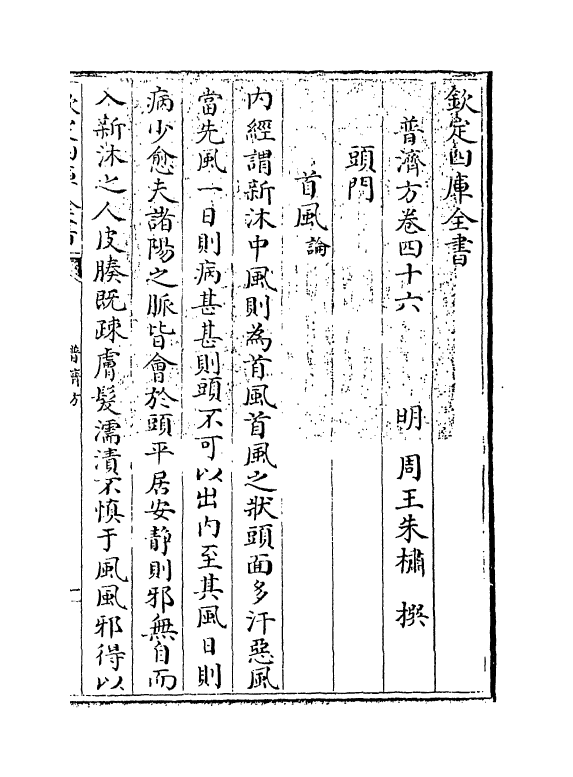 欽定四庫全書
普濟方卷四十六 明 周王朱橚 撰
頭門
首風論
內經謂新沐中風則為首風首風之狀頭面多汗惡風
當先風一日則病甚甚則頭不可以出內至其風日則
病少愈夫諸陽之脈皆會於頭平居安靜則邪無自而
入新沐之人皮腠既疎膚髮濡漬不慎于風風邪得以
欽定四庫全書
普濟方
一